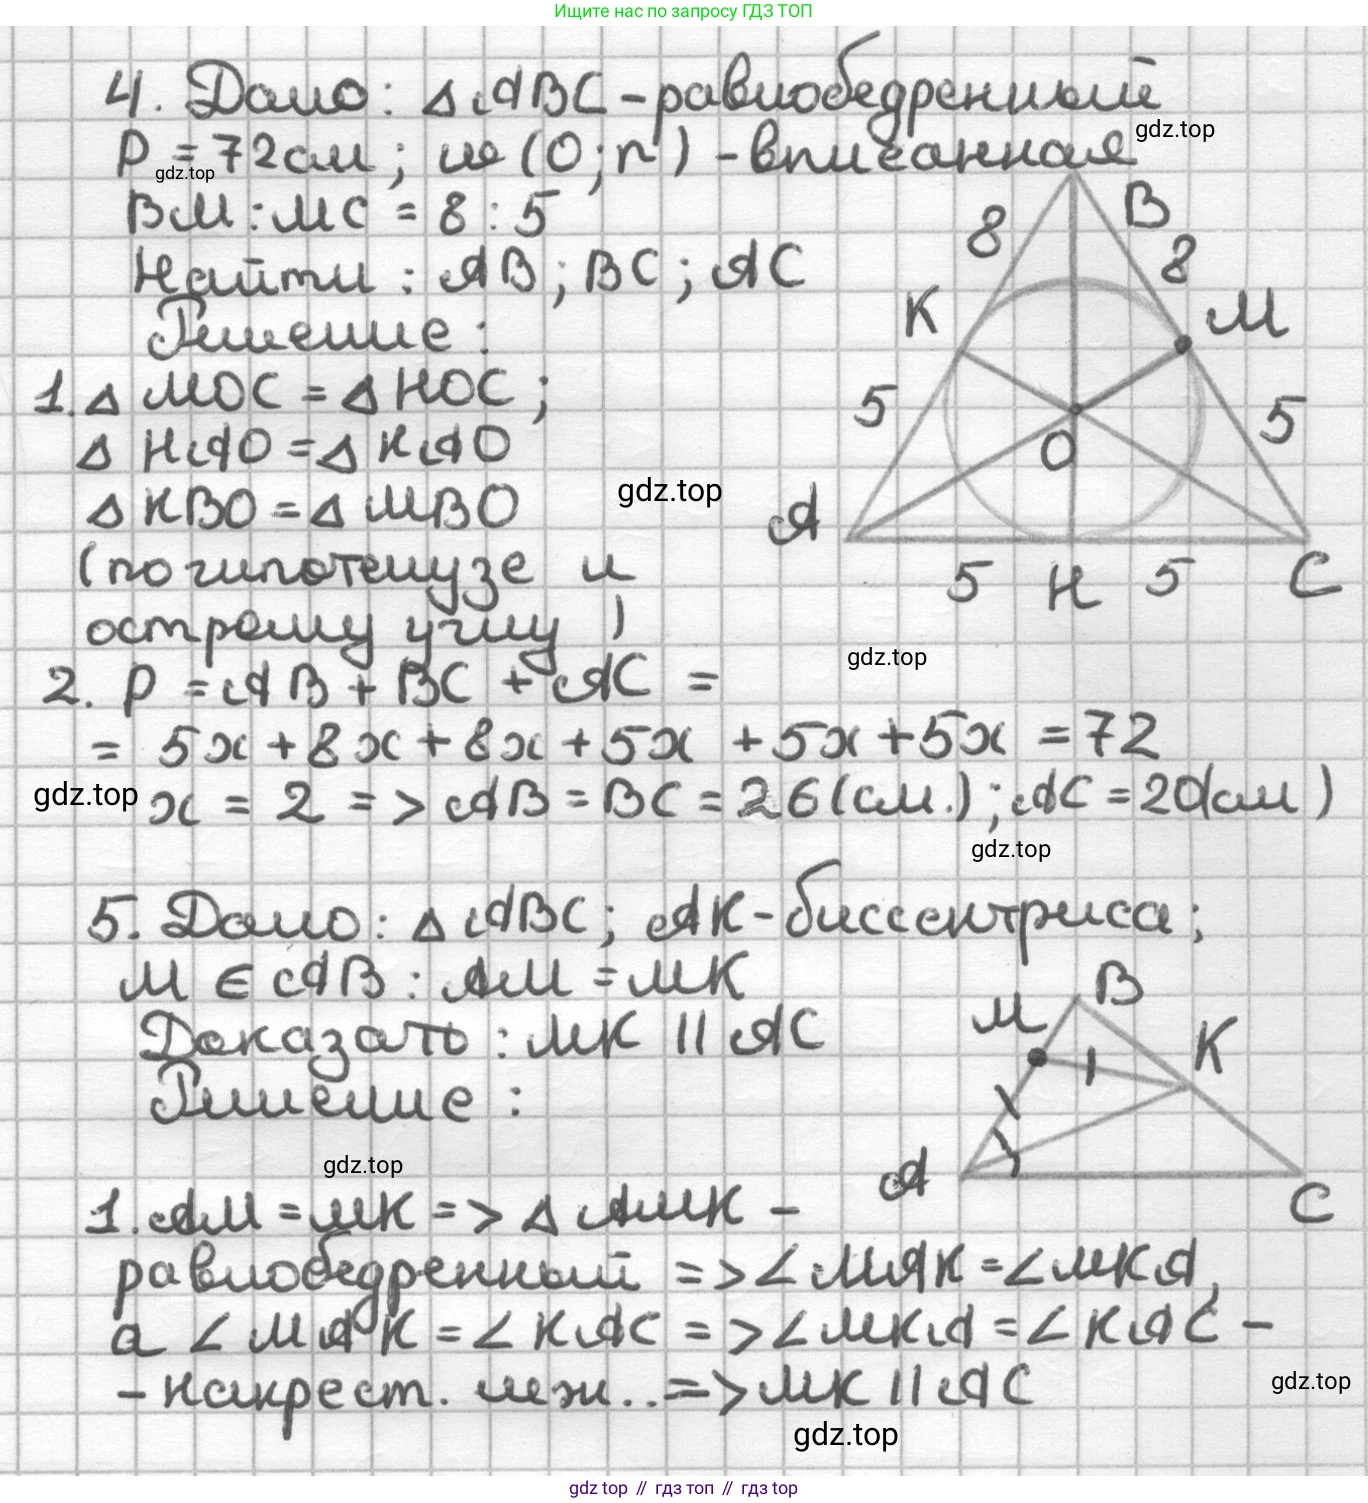 Ищите нас по запросу ГДЗ ТОП
4. Дано: △ ABC - равнобедренный
gdz.top
P = 72 см; ω (O; r) - вписанная
gdz.top
BM : MC = 8 : 5
Найти : AB ; BC ; AC
Решение :
1. △ MOC = △ HOC ;
△ HAO = △ KAO
△ KBO = △ MBO
gdz.top
(по гипотенузе и
острому углу )
B
8
8
K
M
5
5
O
A
5
H
5
C
gdz.top
2. P = AB + BC + AC =
= 5x + 8x + 8x + 5x + 5x + 5x = 72
gdz.top
x = 2 => AB = BC = 26 (см.) ; AC = 20(см )
gdz.top
5. Дано: △ ABC; AK - биссектриса;
M ∈ AB : AM = MK
Доказать : MK || AC
Решение :
B
M
K
A
C
gdz.top
1. AM = MK => △ AMK -
равнобедренный => ∠ MAK = ∠ MKA,
а ∠ MAK = ∠ KAC => ∠ MKA = ∠ KAC -
- накрест. леж.. => MK || AC
gdz.top
gdz.top
gdz top // гдз топ // gdz top